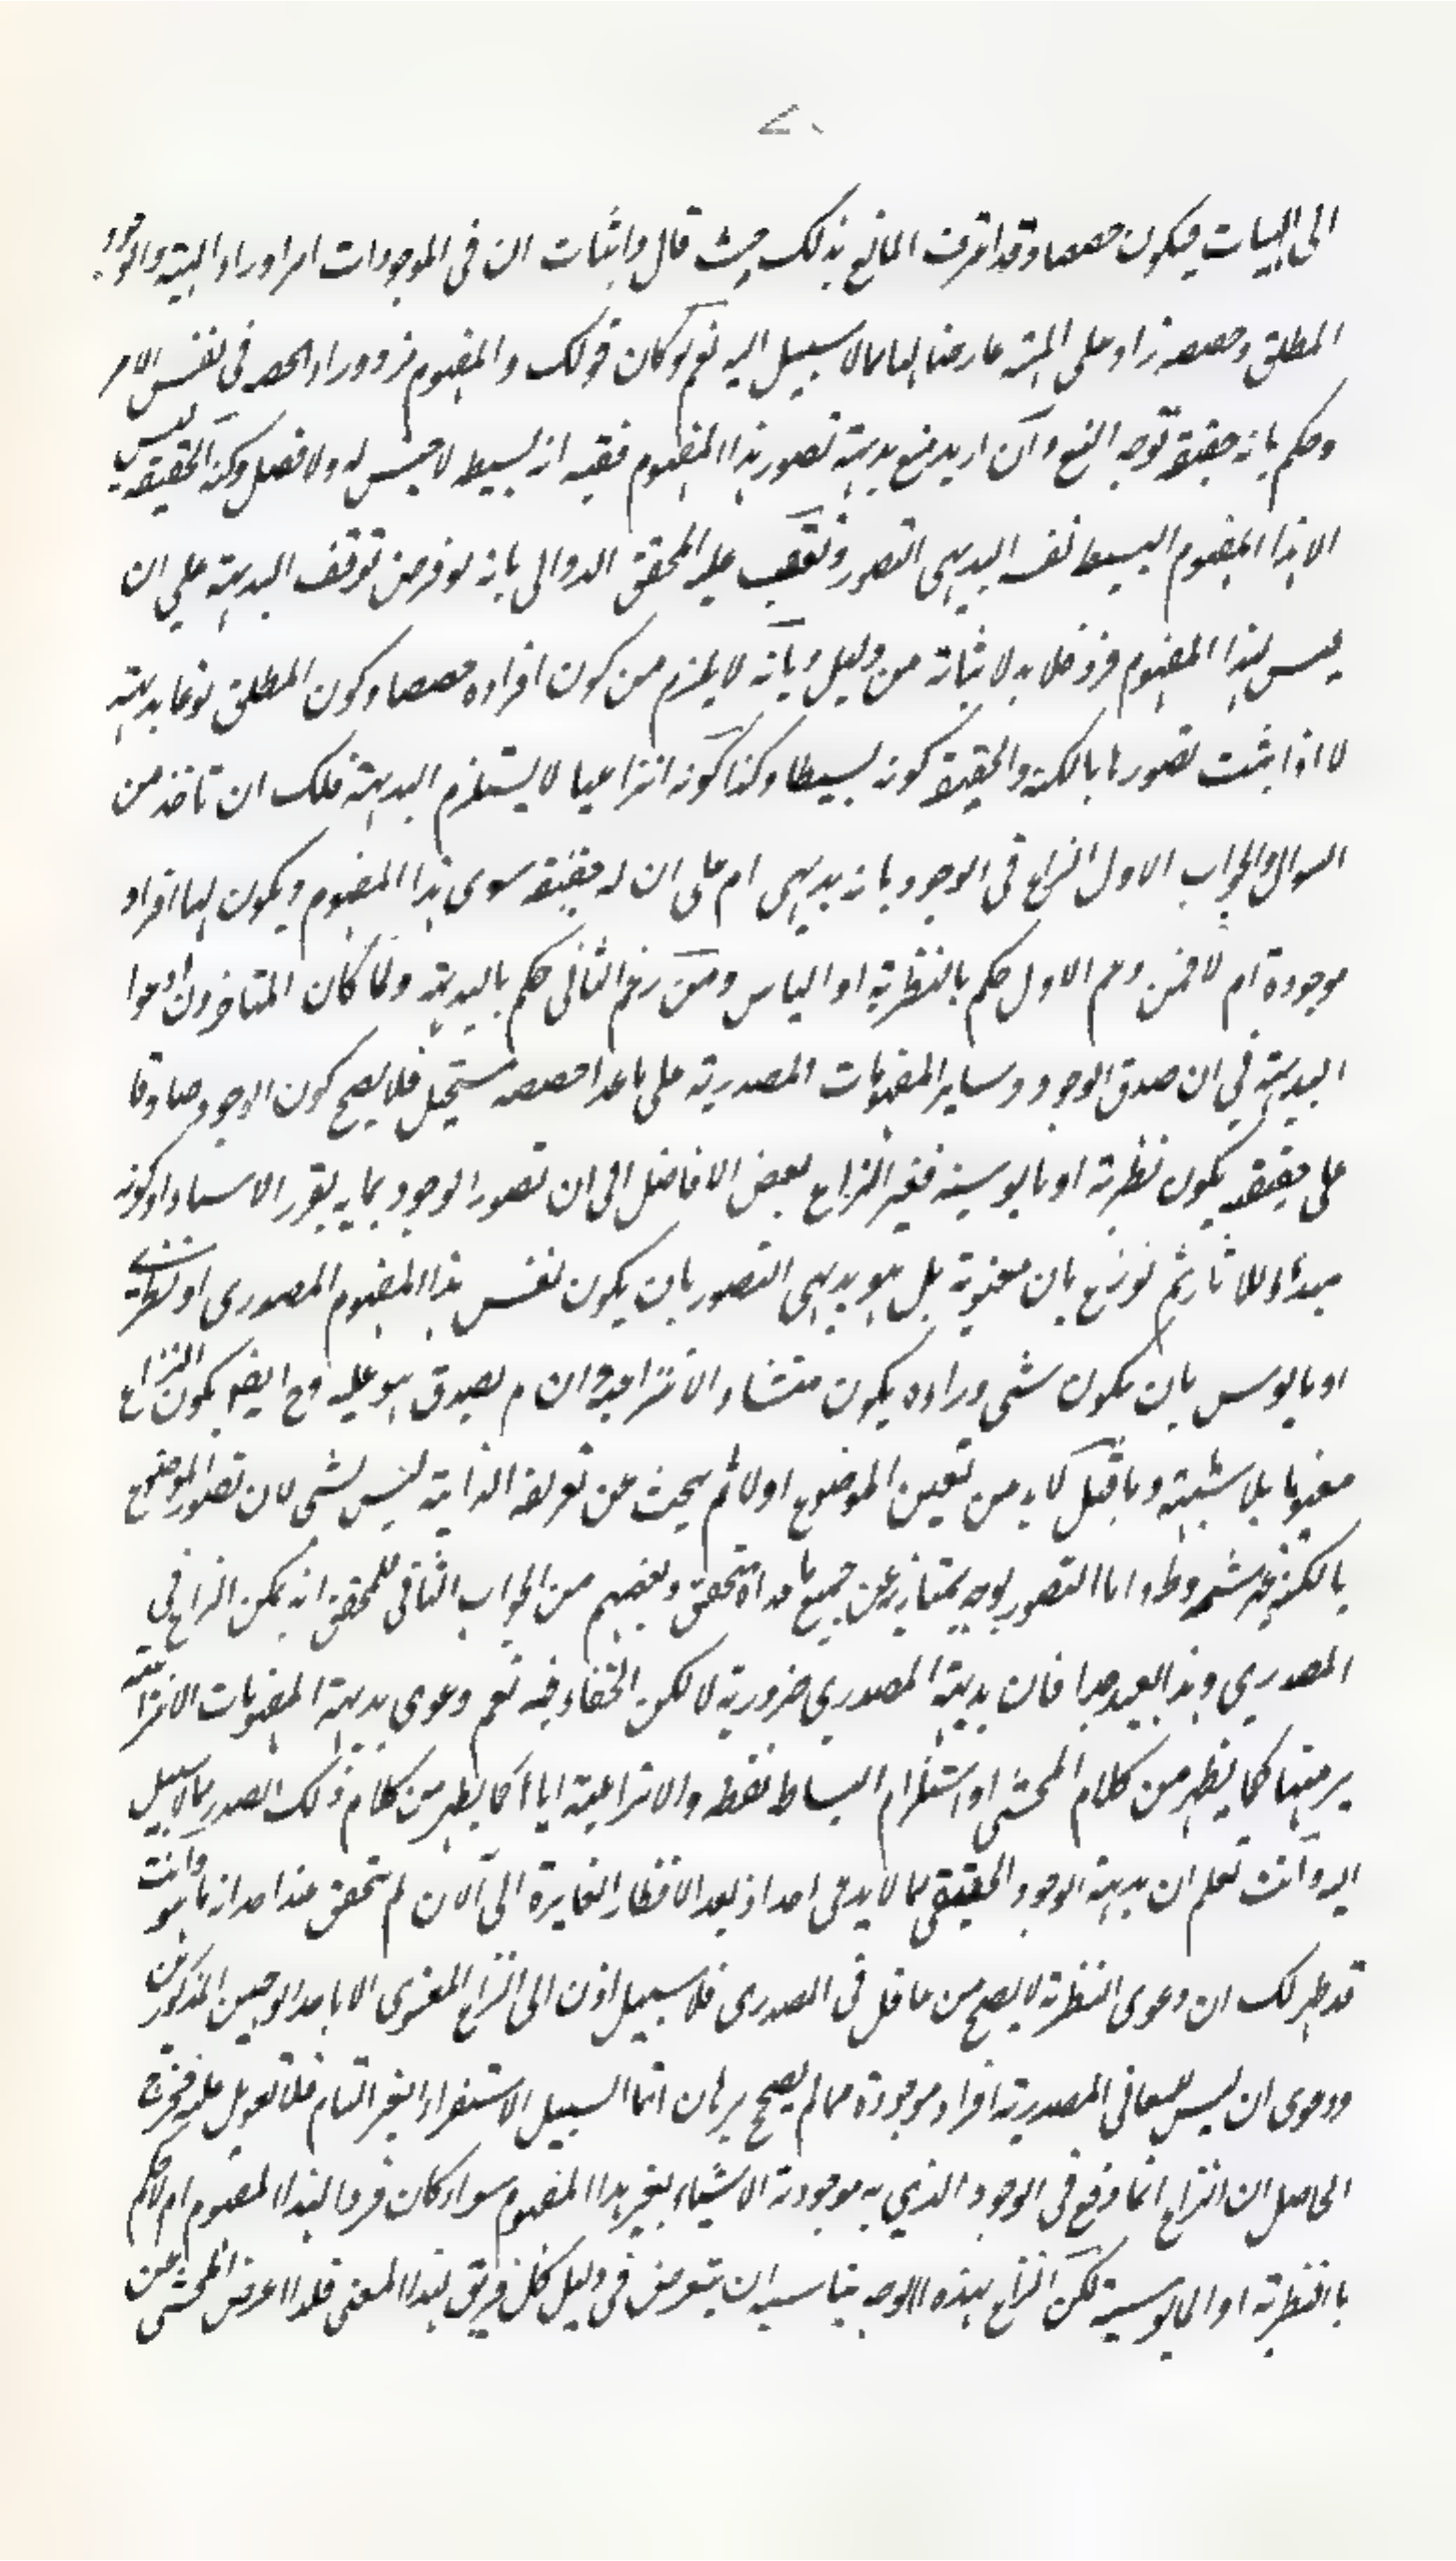 ٧٠
الى المهيات فيكون حصصا وقد اعترف المانع بذلك حيث قال واثبات ان فى الموجودات امرا وراء المهية والوجود
المطلق وحصصه زاد على المهية عارضا لها مما لا سبيل اليه نعم لو كان قولك والمفهوم فرد وراء الحصه فى نفس الامر
وحكم بانه حقيقة توجه المنع وان اريد منع بديهة تصور هذا المفهوم ففيه انه بسيط لا جنس له ولا فصل وكنه الحقيقة ليس
الا هذا المفهوم البسيط نفسه البديهى التصور وتعقب عليه المحقق الدوانى بانه لو فرض توقف البديهة على ان
ليس لهذا المفهوم فرد فلا بد لاثباته من دليل وبانه لا يلزم من كون افراده حصصا وكون المطلق نوعا بديهته
لا اذا ثبت تصورها بالكنه والحقيقة كونه بسيطا وكذا كونه انتزاعيا لا يستلزم البديهة فلك ان تاخذ من
السوال والجواب الاول النزاع فى الوجود بانه بديهى ام على ان له حقيقة سوى هذا المفهوم ويكون لها افراد
موجودة ام لا فمن زعم الاول حكم بالنظرية او الياس ومن زعم الثانى حكم بالبديهة ولما كان المتاخرون ادعوا
البديهة فى ان صدق الوجود وساير المفهومات المصدرية على ما عدا حصصه مستحيل فلا يصح كون الوجود صادقا
على حقيقة يكون نظرية او مايوسية فغير النزاع بعض الافاضل الى ان تصور الوجود بما به تقرر الاشياء او كونه
مبداء للاثار ثم نوزع بان معنوية بل هو بديهى التصور بان يكون نفس هذا المفهوم المصدرى او نظرى
او مايوس بان يكون شى وراءه يكون منشاء الانتزاعه وان لم يصدق هو عليه وح ايضا يكون النزاع
معنويا بلا شبهة وما قيل لا بد من تعين الموضوع اولا ثم يبحث عن تعريفه الذاتية ليس بشى لان تصور الموضوع
بالكنه غير مشروط واما التصور بوجه يمتاز به عن جميع ما عداه متحقق وبعضهم من الجواب الثانى للمحقق انه يمكن النزاع فى
المصدرى وهذا بعيد جدا فان بديهة المصدرى ضرورية لا لكن الخفاء فيه نعم دعوى بديهة المفهومات الانتزاعية
برمتها كما يظهر من كلام المحشى او استلزام البساط فقط والانتزاعية اياها كما يظهر من كلام ذلك الصدر مما لا سبيل
اليه وانت تعلم ان بديهة الوجود الحقيقى مما لا يدعى احد اذ بعد الافكار الغايرة الى الان لم يتحقق عند احد انه ما هو وانت
قد ظهر لك ان دعوى النظرية لا يصح من عاقل فى المصدرى فلا سبيل اذن الى النزاع المعنوى الا باحد الوجهين المذكورين
ودعوى ان ليس للمعانى المصدرية افراد موجودة مما لم يصح برهان انما السبيل الاستقراء الغير التام فلا تعويل عليه فخرج
الحاصل ان النزاع انما وقع فى الوجود الذي به موجودية الاشياء بغير هذا المفهوم سواء كان فردا لهذا المفهوم ام لا حكم
باالنظرية او المايوسية لكن النزاع بهذه الاوجه يناسبه ان يتعرض فى دليل كل فريق لهذا المعنى فلذا اعرض المحشى عن